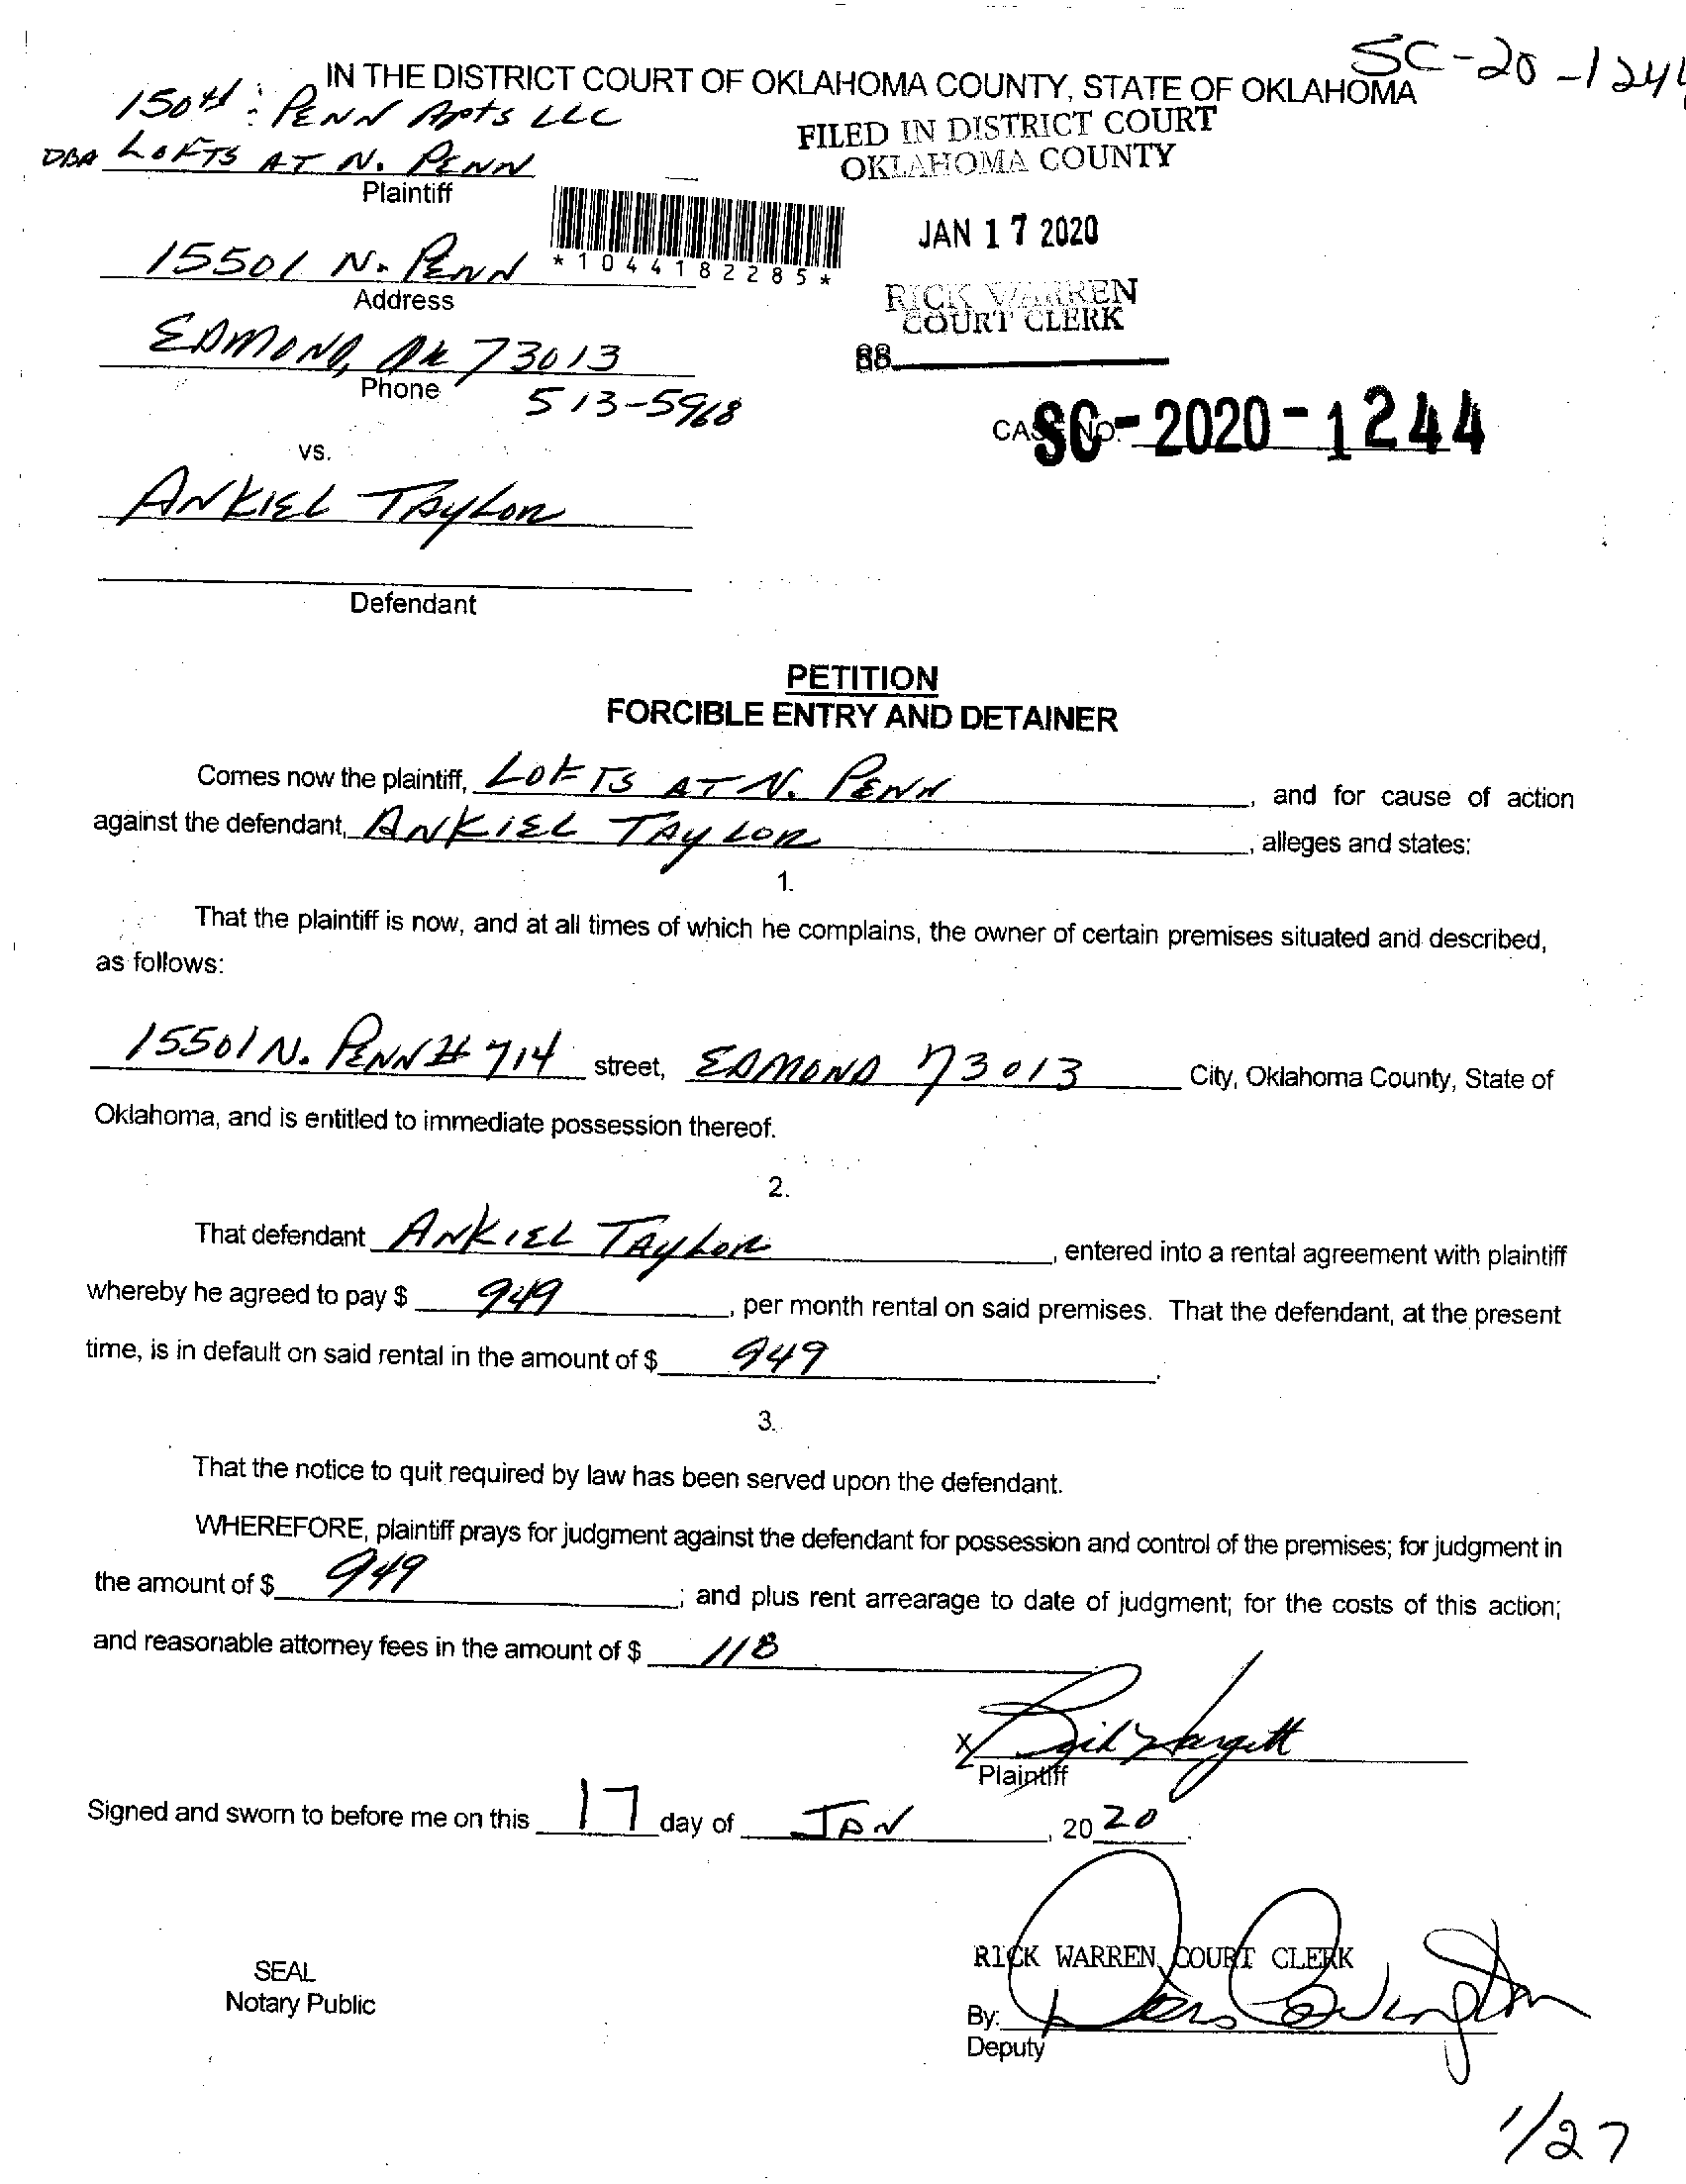 SC-20-124
IN THE DISTRICT COURT OF OKLAHOMA COUNTY, STATE OF OKLAHOMA
150th : PENN Apts LLC
DBA LOFTS AT N. PENN
Plaintiff
FILED IN DISTRICT COURT
OKLAHOMA COUNTY
JAN 17 2020
RICK WARREN
COURT CLERK
88
*1044182285*
15501 N. PENN
Address
EDMOND, OK 73013
Phone
513-5968
CASE NO. SC-2020-1244
vs.
ANKIEL TAYLOR
Defendant
PETITION
FORCIBLE ENTRY AND DETAINER
Comes now the plaintiff, LOFTS AT N. PENN, and for cause of action
against the defendant, ANKIEL TAYLOR, alleges and states:
1.
That the plaintiff is now, and at all times of which he complains, the owner of certain premises situated and described,
as follows:
15501 N. PENN # 714 street, EDMOND 73013 City, Oklahoma County, State of
Oklahoma, and is entitled to immediate possession thereof.
2.
That defendant ANKIEL TAYLOR, entered into a rental agreement with plaintiff
whereby he agreed to pay $ 949, per month rental on said premises. That the defendant, at the present
time, is in default on said rental in the amount of $ 949.
3.
That the notice to quit required by law has been served upon the defendant.
WHEREFORE, plaintiff prays for judgment against the defendant for possession and control of the premises; for judgment in
the amount of $ 949; and plus rent arrearage to date of judgment; for the costs of this action;
and reasonable attorney fees in the amount of $ 118
X
Plaintiff
Signed and sworn to before me on this 17 day of JAN, 2020.
SEAL
Notary Public
RICK WARREN, COURT CLERK
By:
Deputy
1/27